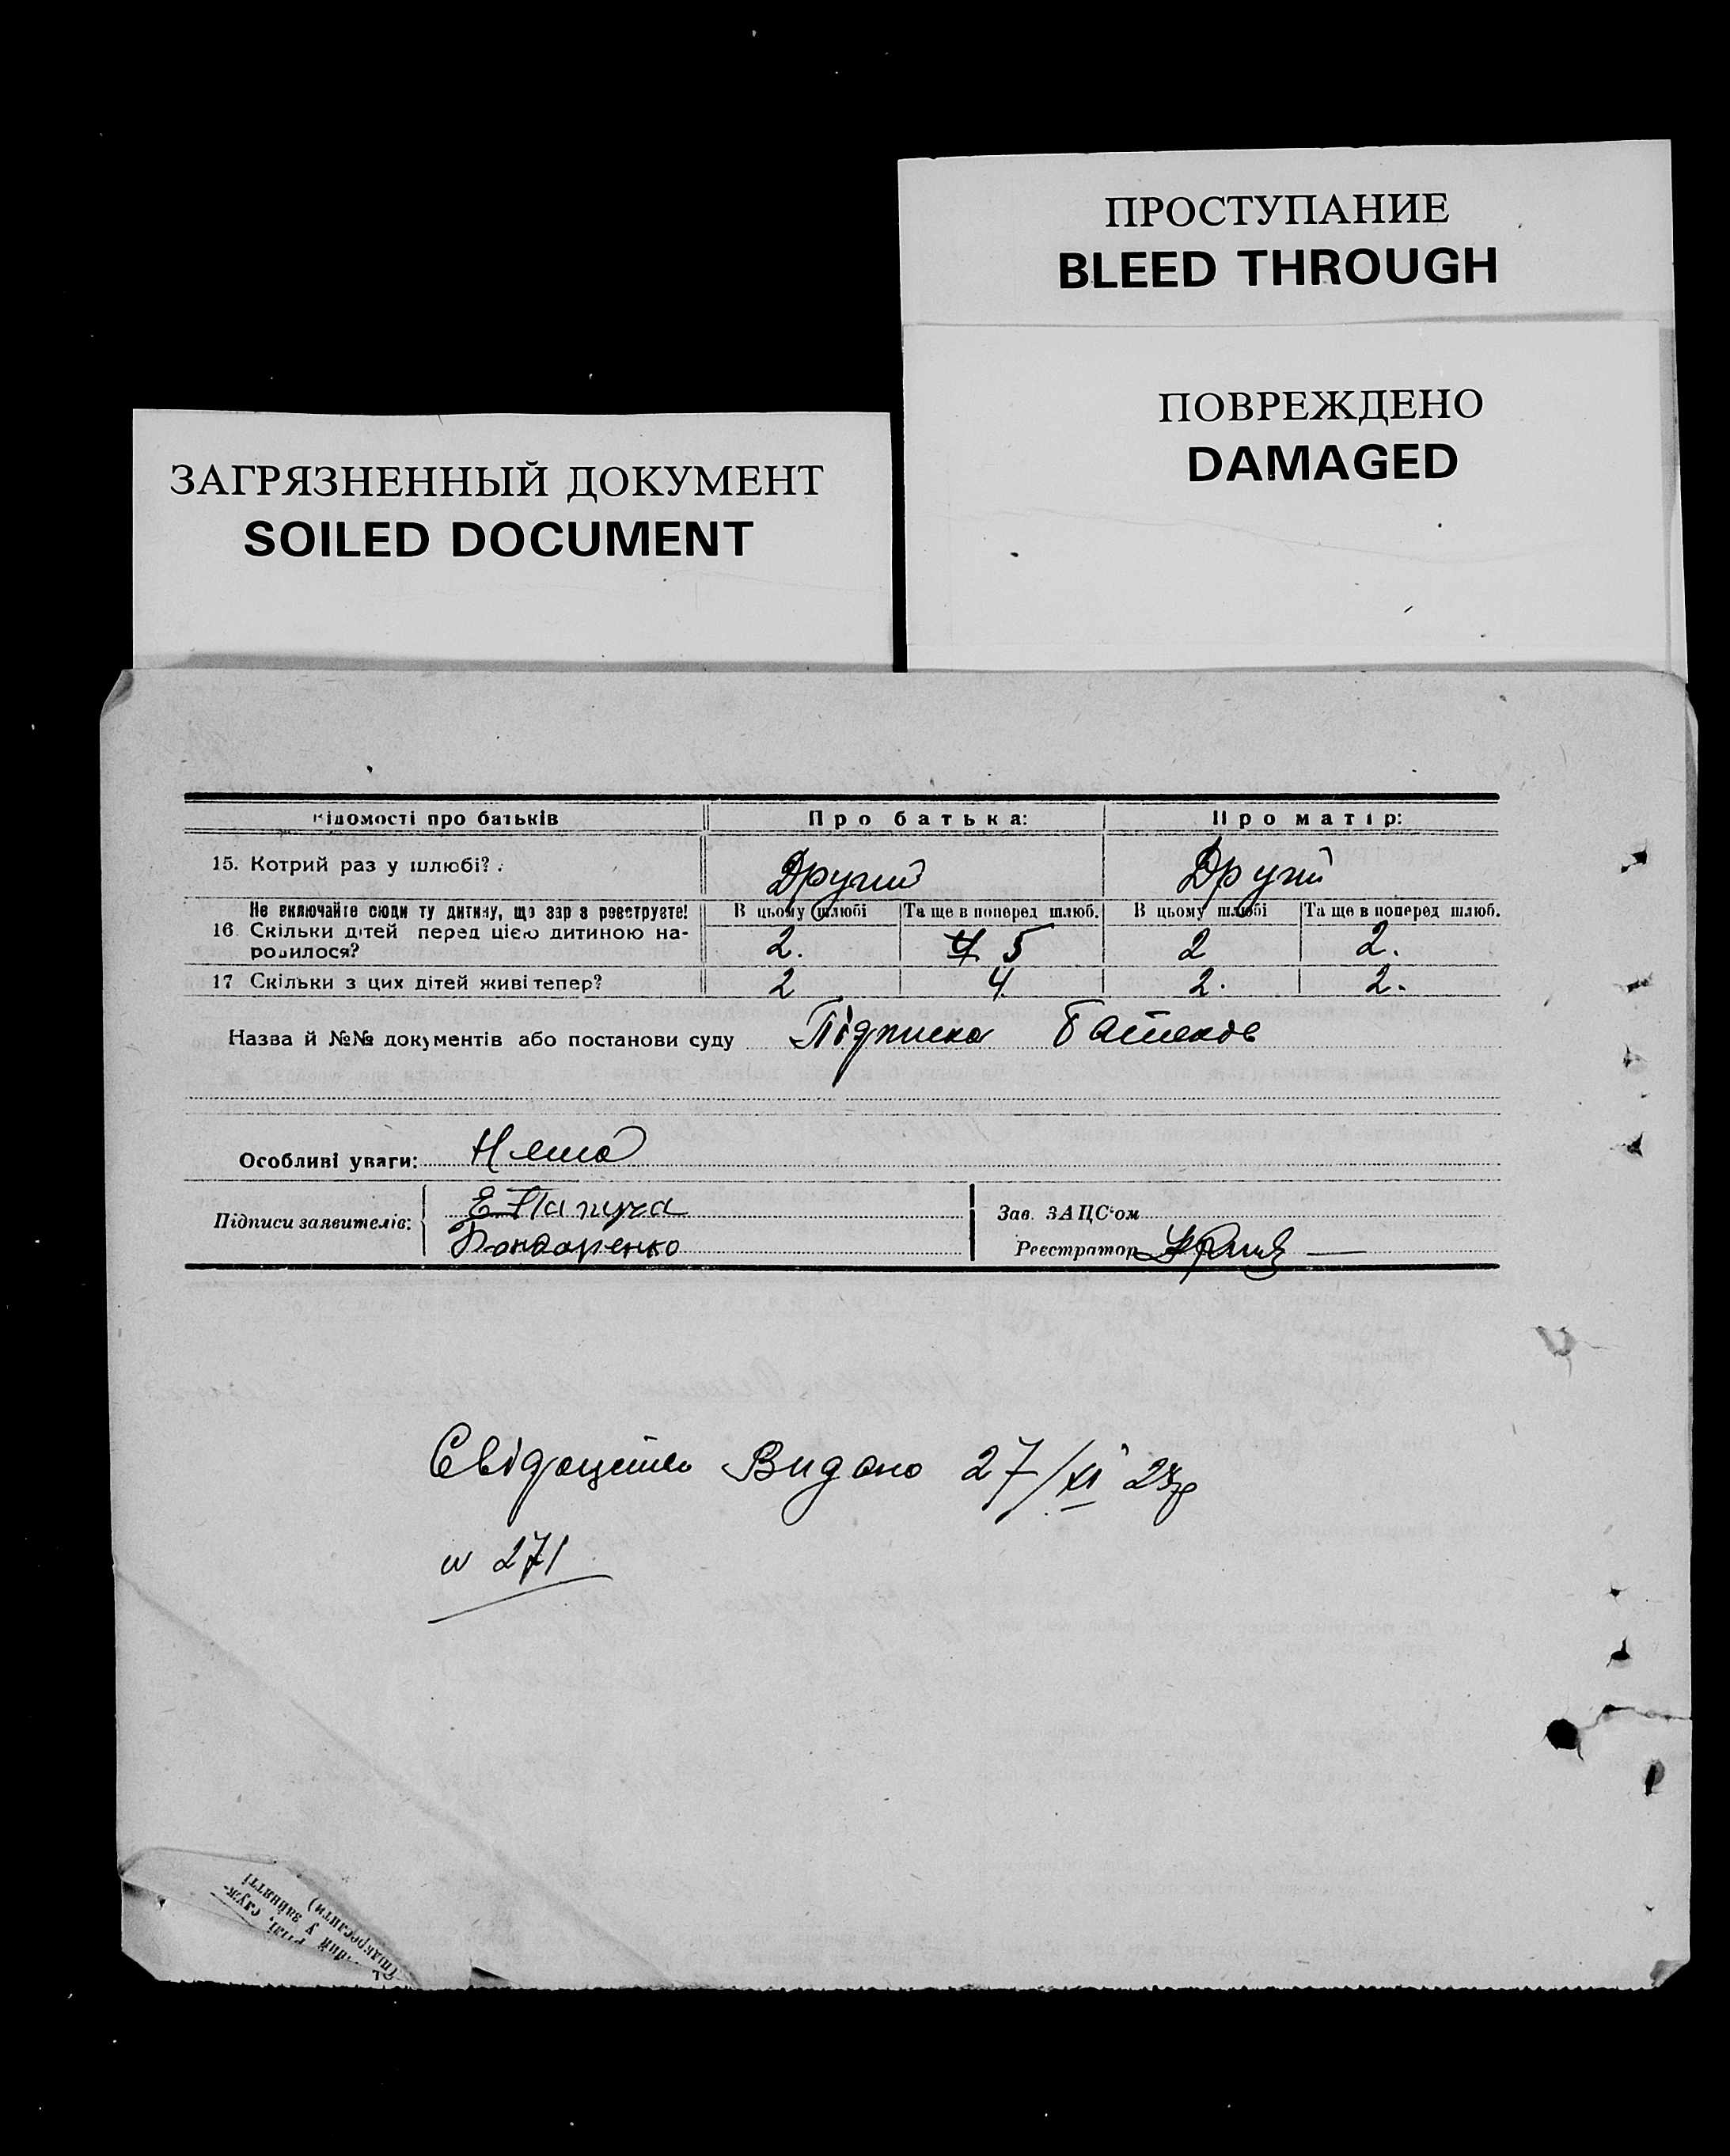 ПРОСТУПАНИЕ
BLEED THROUGH
ПОВРЕЖДЕНО
DAMAGED
ЗАГРЯЗНЕННЫЙ ДОКУМЕНТ
SOILED DOCUMENT
відомості про батьків Про батька: Про матір:
15. Котрий раз у шлюбі? Другий Другий
Не включайте сюди ту дитину, що зараз реєструєте! В цьому шлюбі Та ще в поперед шлюб. В цьому шлюбі Та ще в поперед шлюб.
16. Скільки дітей перед цією дитиною на-
родилося? 2. 4 5 2 2.
17 Скільки з цих дітей живі тепер? 2 4 2. 2.
Назва й №№ документів або постанови суду Підписка
Особливі уваги: Нема
Підписи заявителів: Е Папуча
Бондаренко
Зав. ЗАЦС'ом
Реєстратор
Свідоцтво Видано 27/XI
№ 271
(підкреслити)
у зайнятті